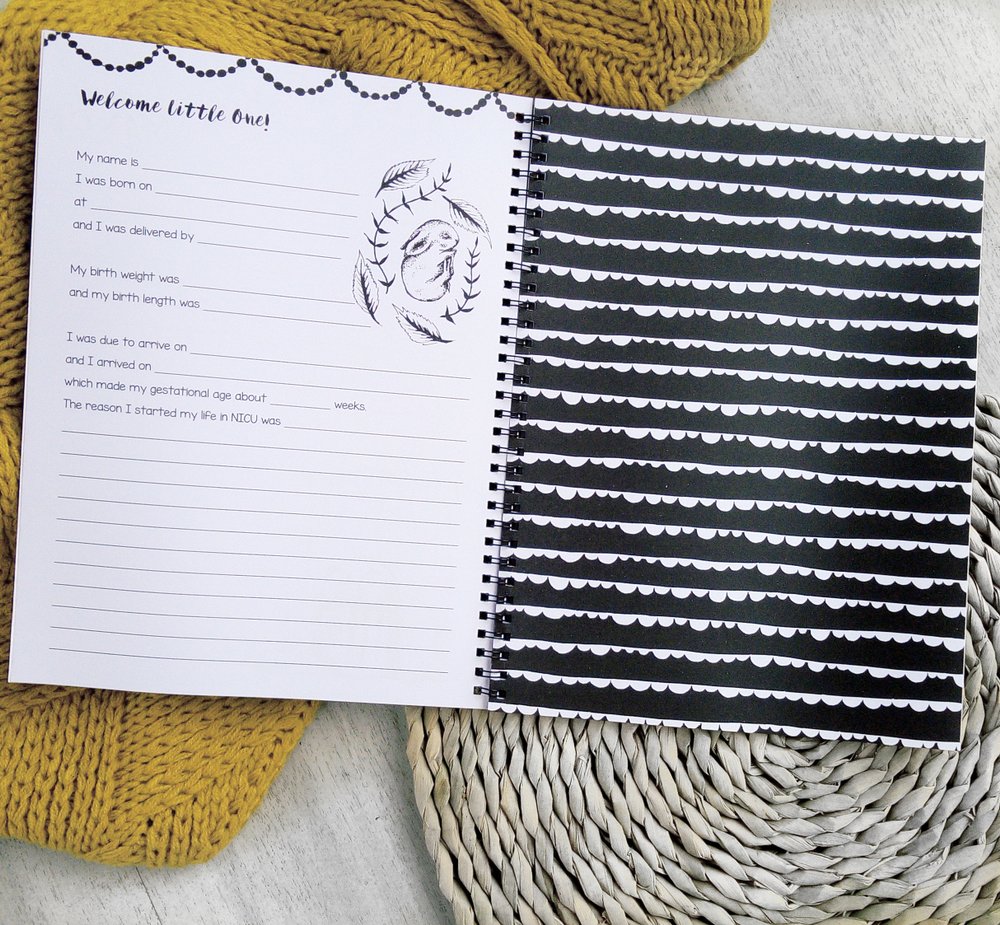 Welcome little One!
My name is
I was born on
at
and I was delivered by
My birth weight was
and my birth length was
I was due to arrive on
and I arrived on
which made my gestational age about weeks.
The reason I started my life in NICU was